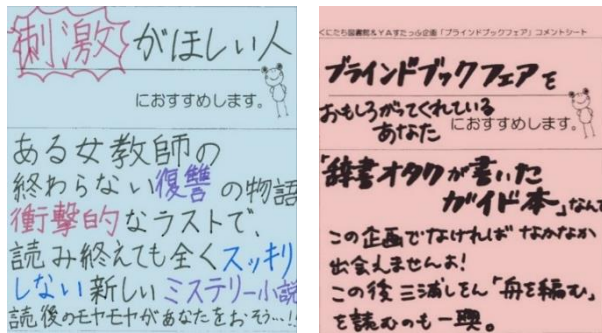 刺激がほしい人
におすすめします。
ある女教師の
終わらない復讐の物語
衝撃的なラストで、
読み終えても全くスッキリ
しない新しいミステリー小説
読後のモヤモヤがあなたをおそう…!!
くにたち図書館&YAすたっふ企画「ブラインドブックフェア」コメントシート
ブラインドブックフェアを
おもしろがってくれている
あなた におすすめします。
「辞書オタクが書いた
ガイド本」なんて
この企画でなければなかなか
出会えませんよ!
この後 三浦しをん「舟を編む」
を読むのも一興。